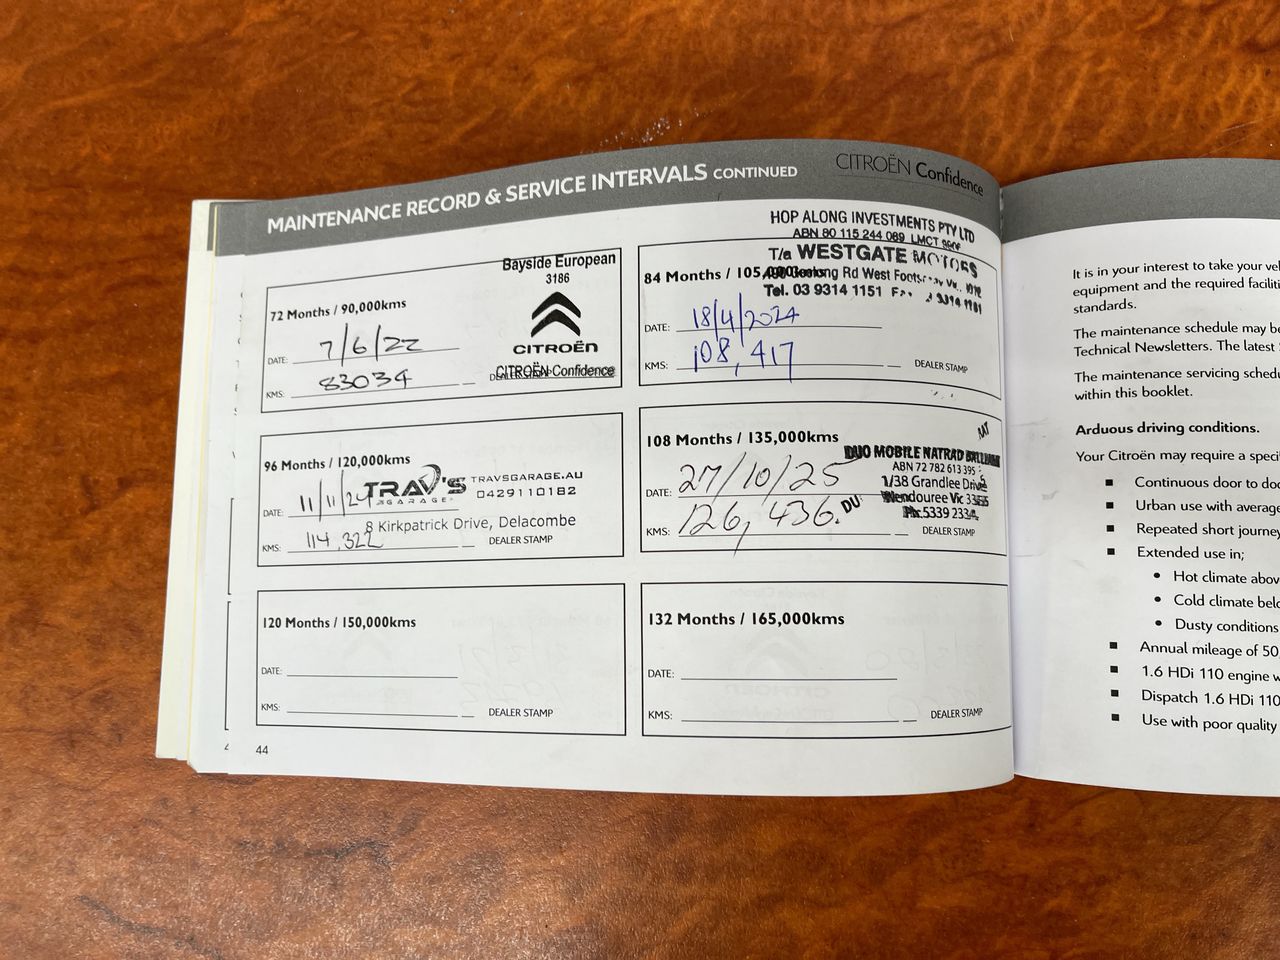 MAINTENANCE RECORD & SERVICE INTERVALS CONTINUED
CITROËN Confidence
72 Months / 90,000kms
Bayside European
3186
CITROËN
CITROËN Confidence
DATE: 7/6/22
KMS: 83034
HOP ALONG INVESTMENTS PTY LTD
ABN 80 115 244 089 LMCT
T/a WESTGATE MOTORS
84 Months / 105,000kms
Rd West
Tel. 03 9314 1151
9314 1181
DATE: 18/4/2024
KMS: 108,417
DEALER STAMP
96 Months / 120,000kms
TRAV'S
GARAGE
TRAVSGARAGE.AU
0429110182
8 Kirkpatrick Drive, Delacombe
DATE: 11/11/24
KMS: 114,322
DEALER STAMP
108 Months / 135,000kms
DUO MOBILE NATRAD
ABN 72 782 613 395
1/38 Grandlee Drive
Wendouree Vic 3355
Ph: 5339 2334
DATE: 27/10/25
KMS: 126,436.
DEALER STAMP
120 Months / 150,000kms
DATE:
KMS:
DEALER STAMP
132 Months / 165,000kms
DATE:
KMS:
DEALER STAMP
44
It is in your interest to take your
equipment and the required
standards.
The maintenance schedule may be
Technical Newsletters. The latest
The maintenance servicing
within this booklet.
Arduous driving conditions.
Your Citroën may require a
Continuous door to
Urban use with
Repeated short
Extended use in;
Hot climate
Cold climate
Dusty conditions
Annual mileage of
1.6 HDi 110 engine
Dispatch 1.6 HDi 110
Use with poor quality